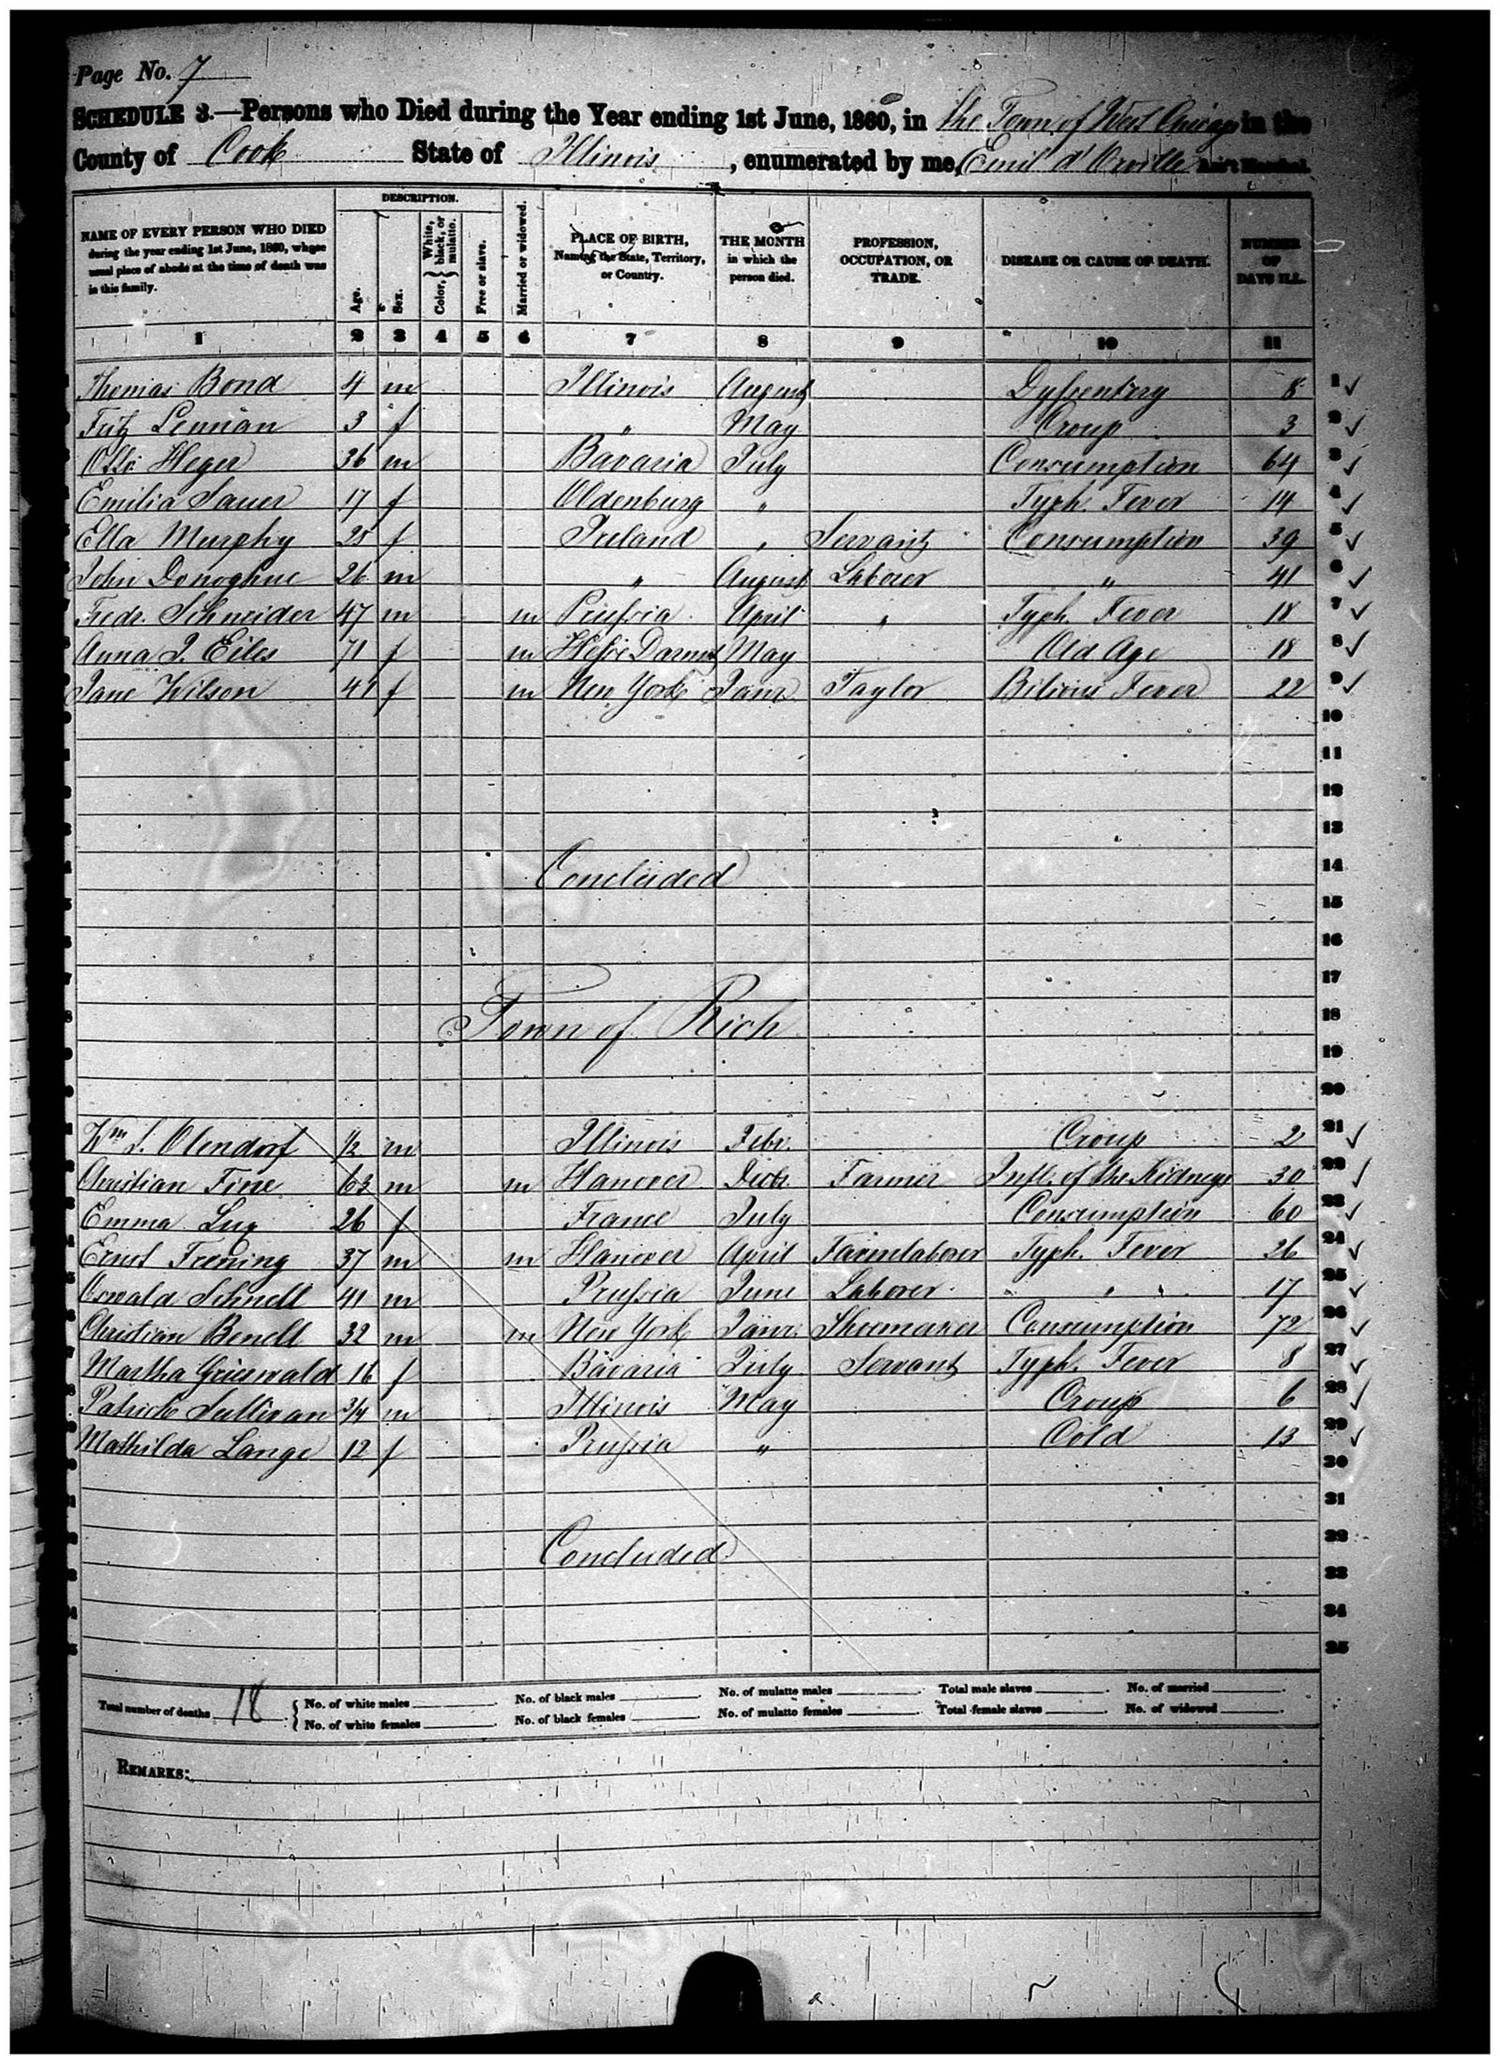 Page No. 7
SCHEDULE 3.—Persons who Died during the Year ending 1st June, 1860, in the Town of West Chicago in the
County of Cook State of Illinois, enumerated by me, Emil d'Orville Ass't Marshal.
NAME OF EVERY PERSON WHO DIED during the year ending 1st June, 1860, whose usual place of abode at the time of death was in this family.
DESCRIPTION.
Age.
Sex.
Color, { White, black, or mulatto.
Free or slave.
Married or widowed.
PLACE OF BIRTH, Naming the State, Territory, or Country.
THE MONTH in which the person died.
PROFESSION, OCCUPATION, OR TRADE.
DISEASE OR CAUSE OF DEATH.
NUMBER OF DAYS ILL.
1 2 3 4 5 6 7 8 9 10 11
Thomas Bond 4 m Illinois August Dyssentery 8 1 ✓
Fritz Lennan 3 f " May Croup 3 2 ✓
Otto Heger 36 m Bavaria July Consumption 64 3 ✓
Emilia Sauer 17 f Oldenburg " Typh. Fever 14 4 ✓
Ella Murphy 25 f Ireland " Servant Consumption 39 5 ✓
John Donoghue 26 m " August Laborer " 41 6 ✓
Fredr. Schneider 47 m m Prussia April " Typh. Fever 18 7 ✓
Anna J. Eiles 71 f m Hesse Darmst May Old Age 18 8 ✓
Jane Wilson 41 f m New York Janr. Taylor Bilious Fever 22 9 ✓
10
11
12
13
Concluded 14
15
16
17
Town of Rich 18
19
20
Wm S. Olendorf 1/2 m Illinois Febr. Croup 2 21 ✓
Christian Fine 63 m m Hanover Decbr Farmer Infl. of the Kidneys 30 22 ✓
Emma Luz 26 f France July Consumption 60 23 ✓
Ernst Frening 37 m m Hanover April Farmelaborer Typh. Fever 26 24 ✓
Oswald Schnell 41 m Prussia June Laborer " " 17 25 ✓
Christian Benell 32 m m New York Janr. Shoemaker Consumption 72 26 ✓
Martha Grieswald 16 f Bavaria July Servant Typh. Fever 8 27 ✓
Patrick Sullivan 3/4 m Illinois May Croup 6 28 ✓
Mathilda Lange 12 f Prussia " Cold 13 29 ✓
30
31
Concluded 32
33
34
35
Total number of deaths 18 { No. of white males No. of black males No. of mulatto males Total male slaves No. of married
No. of white females No. of black females No. of mulatto females Total female slaves No. of widowed
REMARKS: